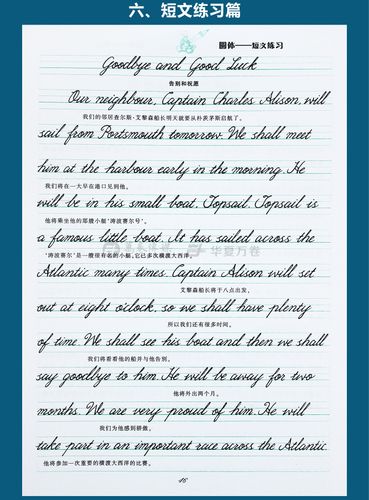 六、短文练习篇
圆体——短文练习
Goodbye and Good Luck
告别和祝愿
Our neighbour, Captain Charles Alison, will
我们的邻居查尔斯·艾黎森船长明天就要从朴茨茅斯启航了。
sail from Portsmouth tomorrow. We shall meet
him at the harbour early in the morning. He
我们将在一大早在港口见到他。
will be in his small boat, Topsail. Topsail is
他将乘坐他的那艘小艇“涛波赛尔号”。
a famous little boat. It has sailed across the
“涛波赛尔”是一艘很有名的小艇,它已多次横渡大西洋。
华夏万卷
Atlantic many times. Captain Alison will set
艾黎森船长将于八点出发,
out at eight o'clock, so we shall have plenty
所以我们还有很多时间。
of time. We shall see his boat and then we shall
我们将看看他的船并与他告别。
say goodbye to him. He will be away for two
他将外出两个月。
months. We are very proud of him. He will
我们为他感到骄傲。
take part in an important race across the Atlantic
他将参加一次重要的横渡大西洋的比赛。